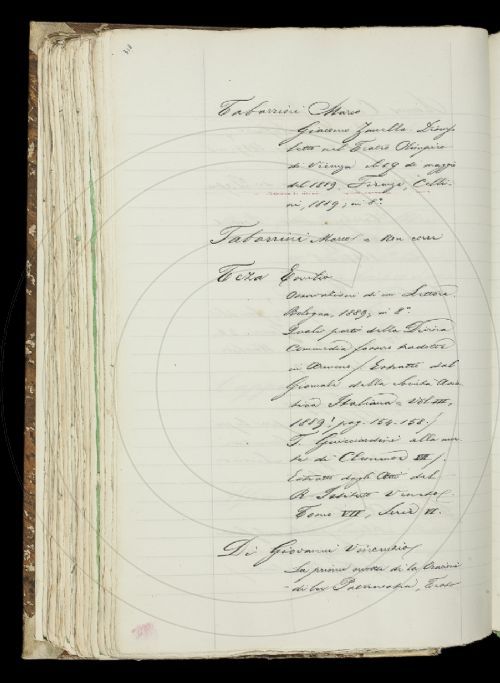 Tabarrini Marco
Giacomo Zanella. Discorso
letto nel Teatro Olimpico
di Vicenza il 29 di maggio
del 1889. Firenze, Celli-
ni, 1889; in 8º
Tabarrini Marco
Teza Emilio
Osservazioni di un Lettore.
Bologna, 1889; in 8º
Quali parti della Divina
Commedia furono tradotte
in Armeno / Estratto dal
Giornale della Società Asia-
tica Italiana - Vol. III,
1889; pag. 154-158 /
F. Guicciardini alla mor-
te di Clemente VII /
Estratto dagli Atti del
R. Istituto Veneto /
Tomo VII, Serie VI.
Di Giovanni Vincenzo
La prima
di Teat